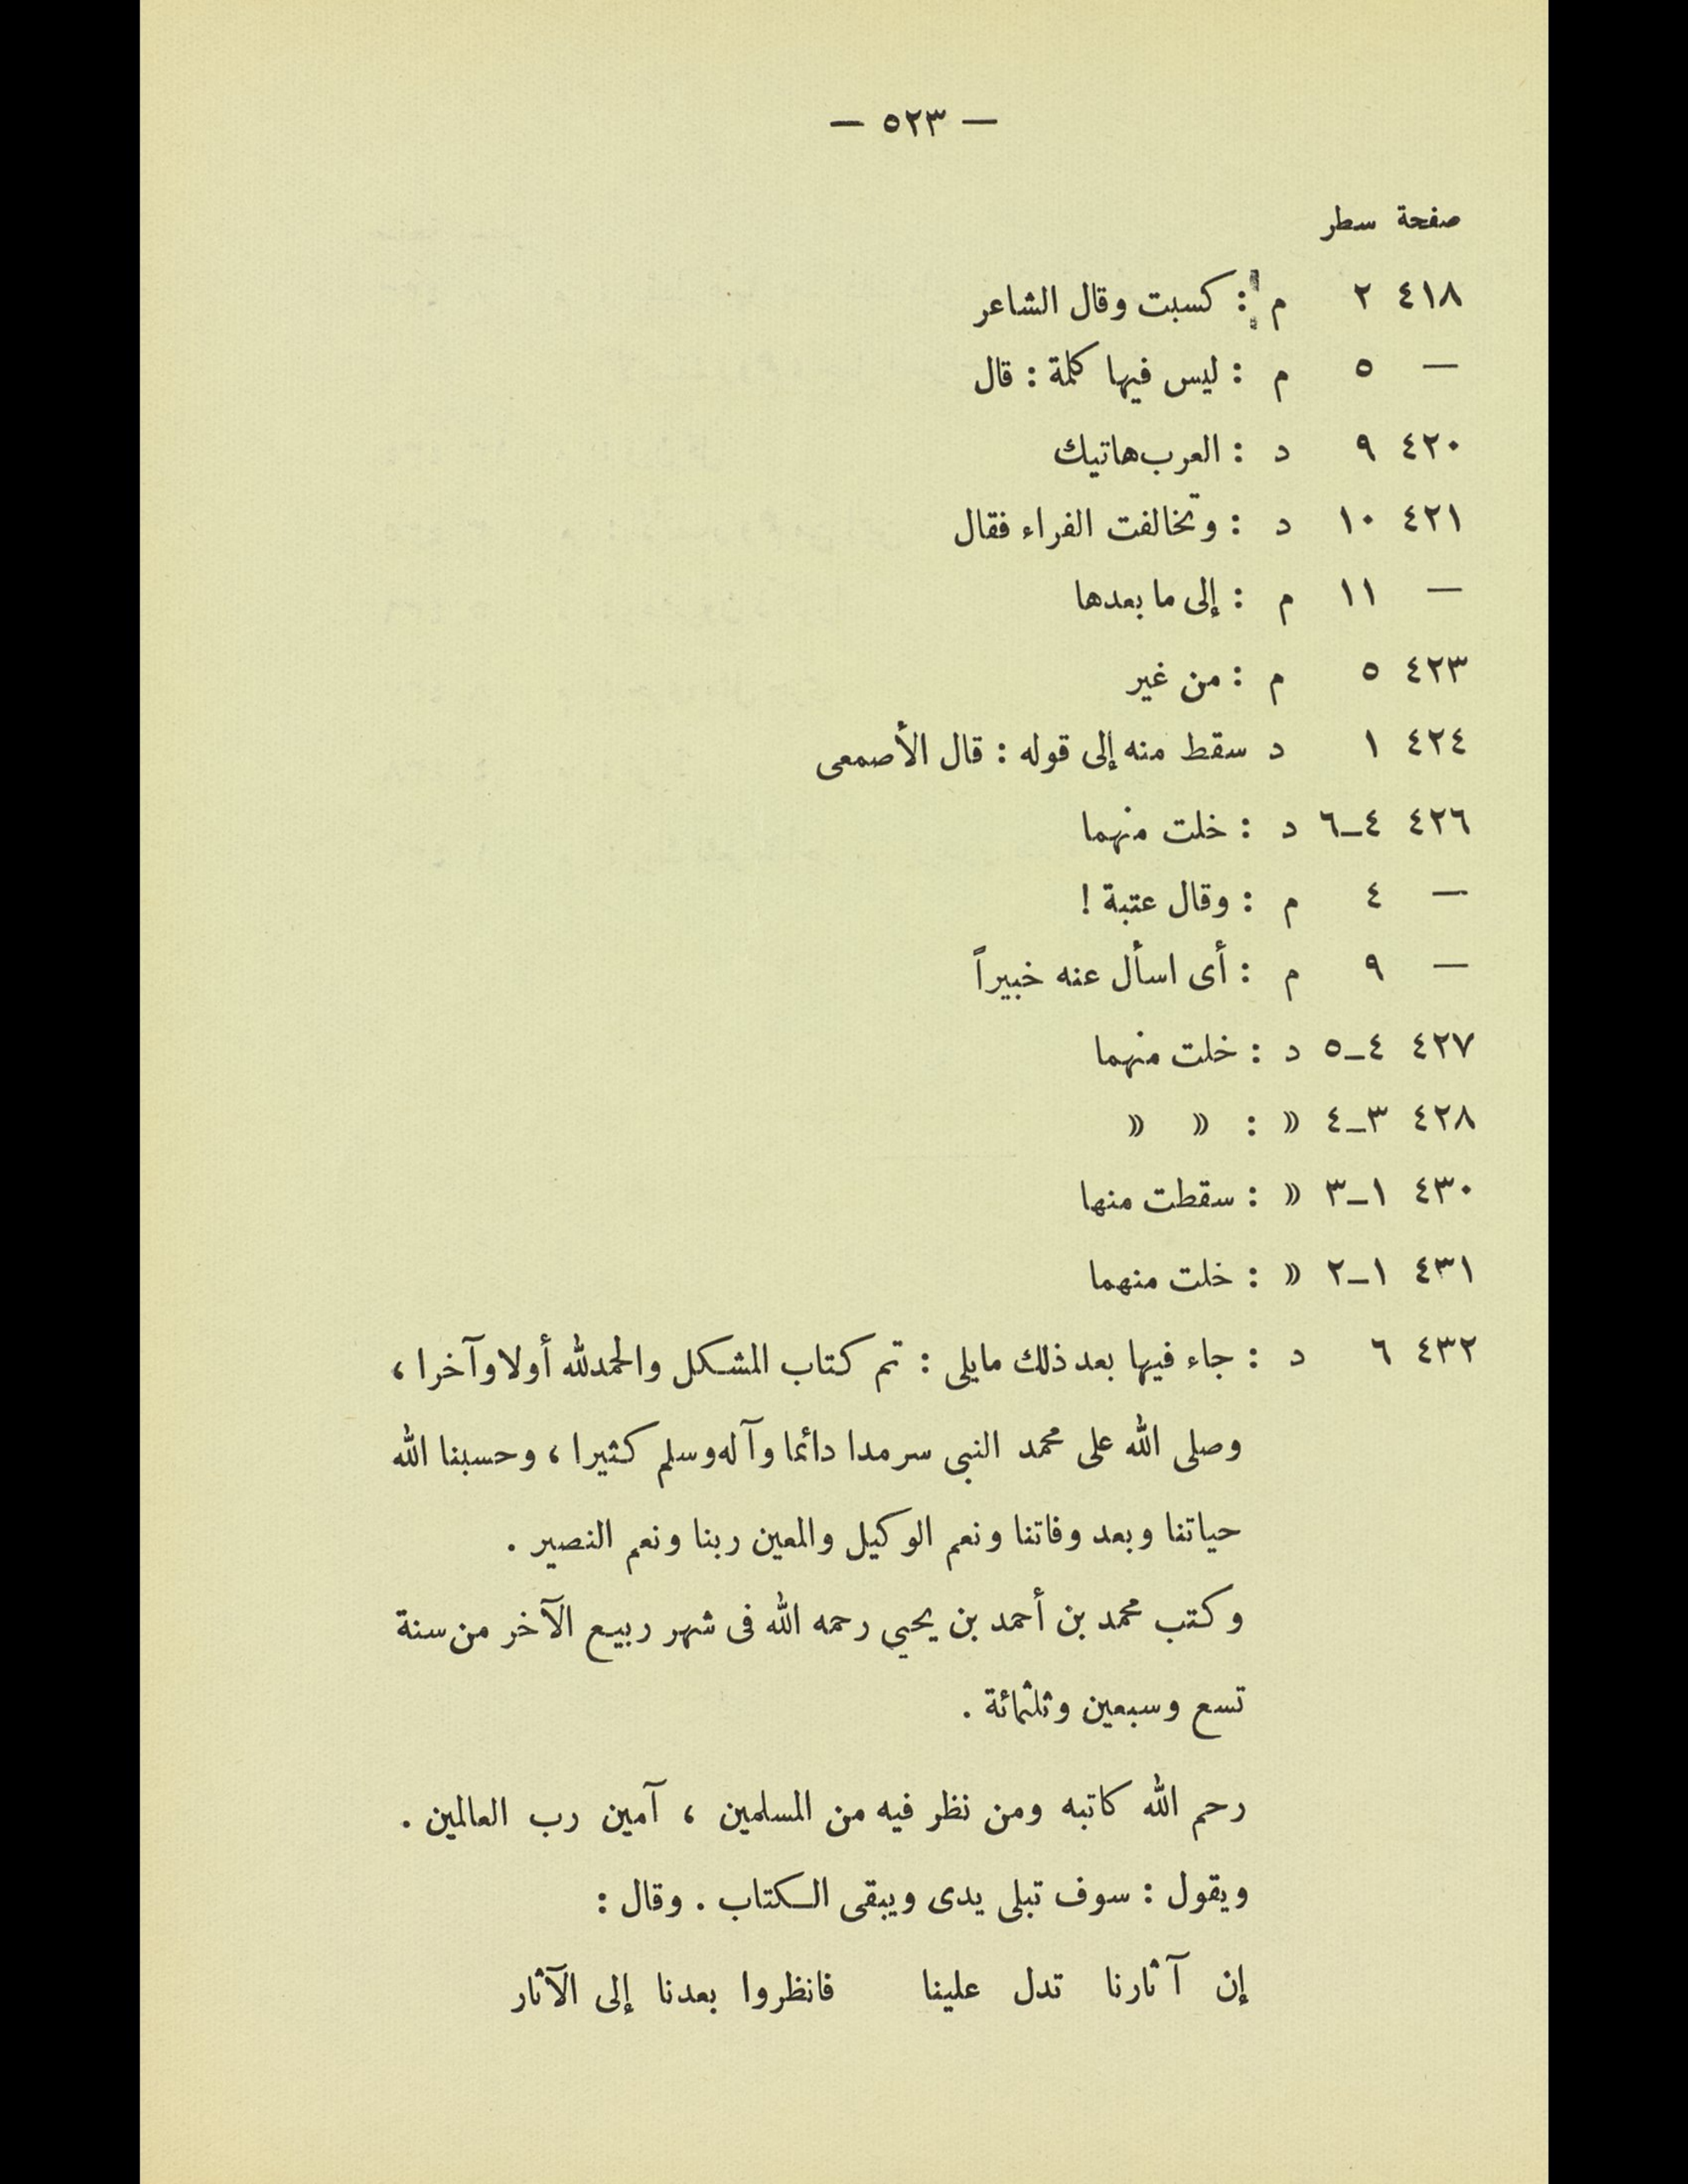 — ٥٢٣ —
صفحة سطر
٤١٨ ٢ م : كسبت وقال الشاعر
— ٥ م : ليس فيها كلمة : قال
٤٢٠ ٩ د : العرب هاتيك
٤٢١ ١٠ د : وتخالفت الفراء فقال
— ١١ م : إلى ما بعدها
٤٢٣ ٥ م : من غير
٤٢٤ ١ د سقط منه إلى قوله : قال الأصمعى
٤٢٦ ٤-٦ د : خلت منهما
— ٤ م : وقال عتبة !
— ٩ م : أى اسأل عنه خبيراً
٤٢٧ ٤-٥ د : خلت منهما
٤٢٨ ٣-٤ » : » »
٤٣٠ ١-٣ » : سقطت منها
٤٣١ ١-٢ » : خلت منهما
٤٣٢ ٦ د : جاء فيها بعد ذلك مايلى : تم كتاب المشكل والحمدلله أولا وآخرا ،
وصلى الله على محمد النبى سرمدا دائما وآله وسلم كثيرا ، وحسبنا الله
حياتنا وبعد وفاتنا ونعم الوكيل والمعين ربنا ونعم النصير .
وكتب محمد بن أحمد بن يحيي رحمه الله فى شهر ربيع الآخر من سنة
تسع وسبعين وثلثمائة .
رحم الله كاتبه ومن نظر فيه من المسلمين ، آمين رب العالمين .
ويقول : سوف تبلى يدى ويبقى الكتاب . وقال :
إن آثارنا تدل علينا فانظروا بعدنا إلى الآثار